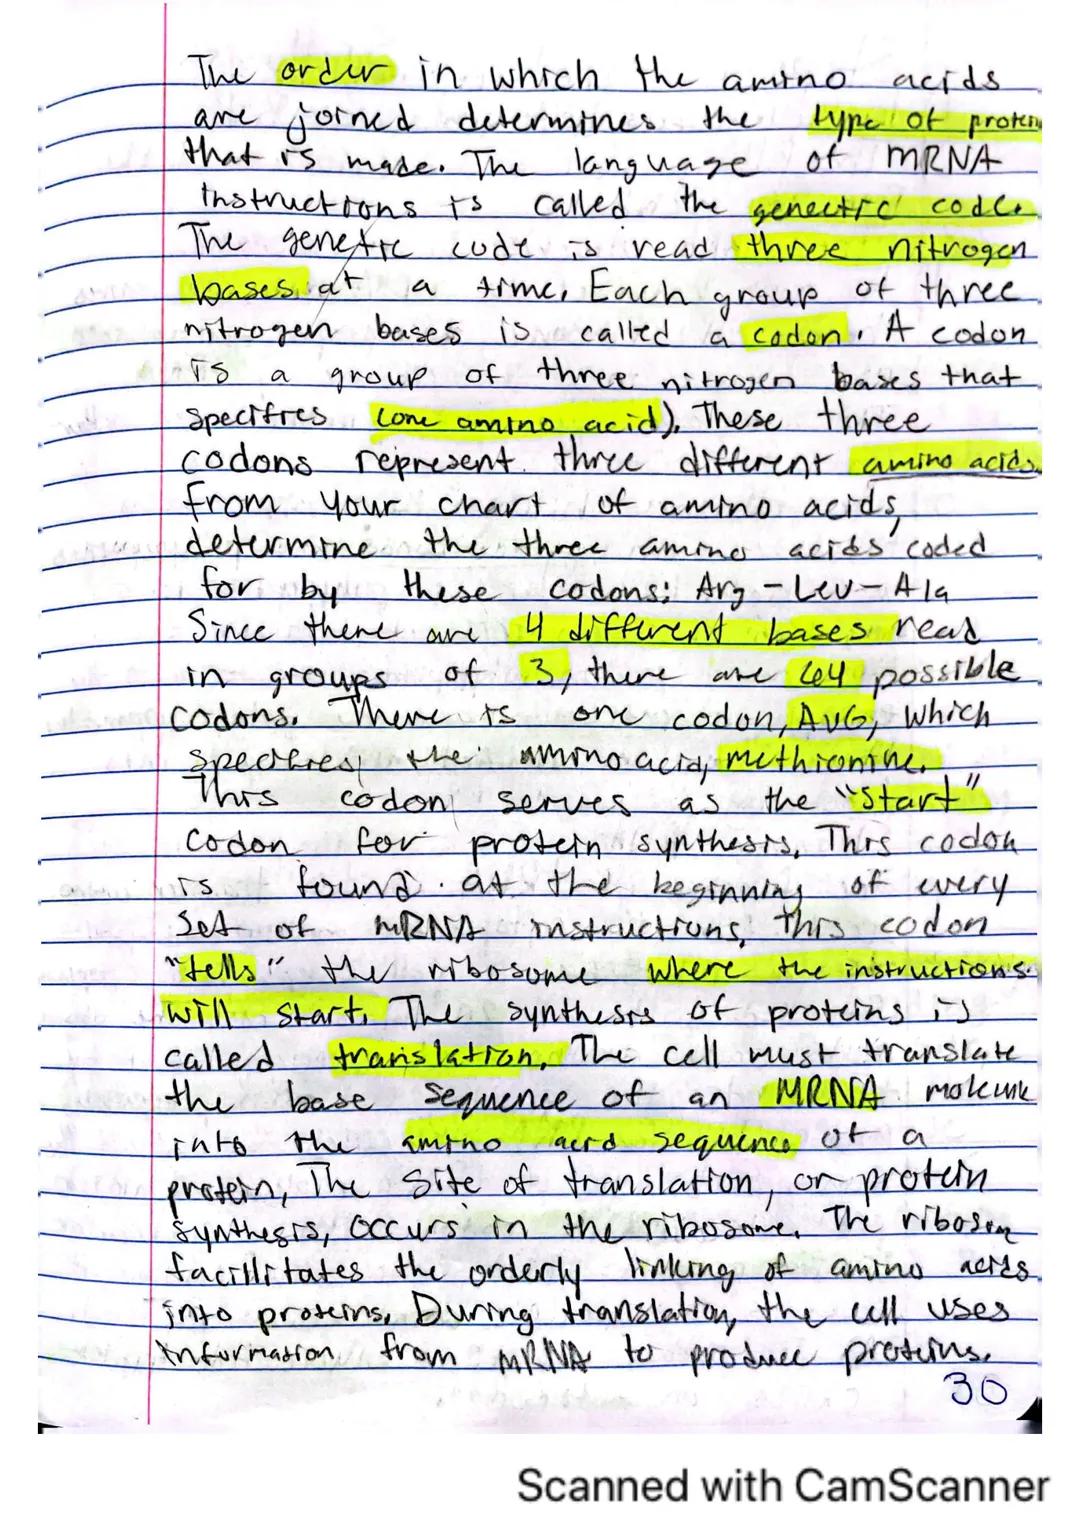 The order in which the amino acids
are joined determines the type of protein
that is made. The language of mRNA
instructions is called the genectic code.
The genetic code is read three nitrogen
bases at a time. Each group of three
nitrogen bases is called a codon. A codon
is a group of three nitrogen bases that
specifies (one amino acid). These three
codons represent three different amino acids.
From your chart of amino acids,
determine the three amino acids coded
for by these codons: Arg-Leu-Ala
Since there are 4 different bases read
in groups of 3, there are 64 possible
codons. There is one codon, AUG, which
specifies the amino acid, methionine.
This codon serves as the "start"
codon for protein synthesis. This codon
is found at the beginning of every
set of mRNA instructions. This codon
"tells" the ribosome where the instructions
will start. The synthesis of proteins is
called translation. The cell must translate
the base sequence of an MRNA molecule
into the amino acid sequence of a
protein, The site of translation, or protein
synthesis, occurs in the ribosome. The ribosom
facillitates the orderly linking of amino acids
into proteins. During translation, the cell uses
information from mRNA to produce proteins.
30
Scanned with CamScanner